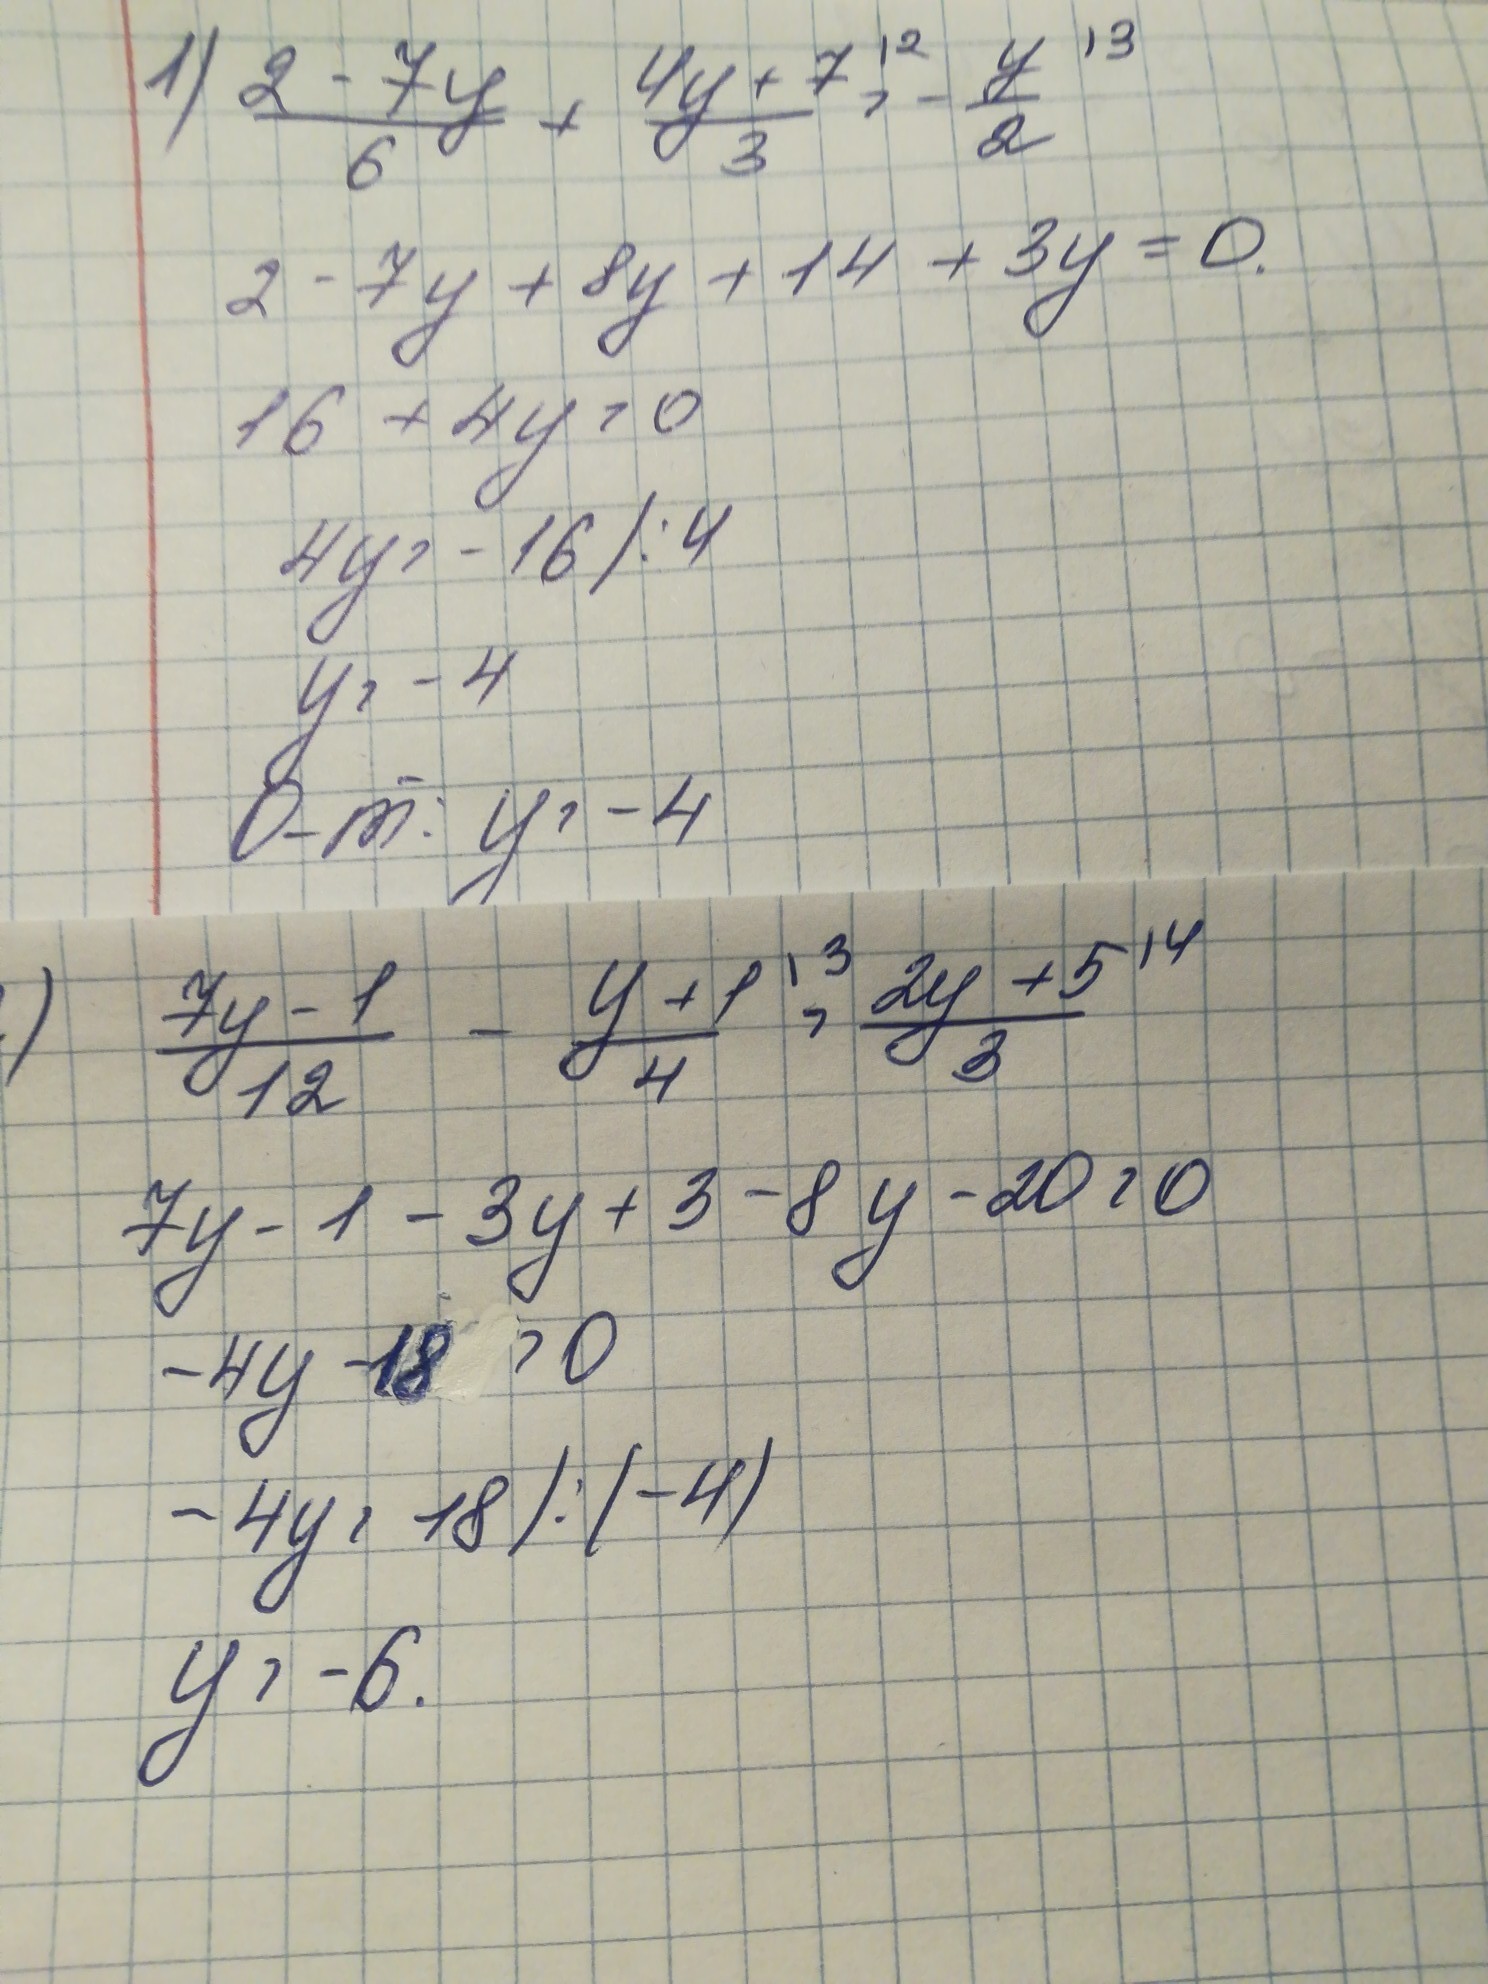 1) (2 - 7y)/6 + (4y + 7)/3 |2 = - y/2 |3
2 - 7y + 8y + 14 + 3y = 0.
16 + 4y = 0
4y = -16 |:4
y = -4
О-т: y = -4
) (7y - 1)/12 - (y + 1)/4 |3 = (2y + 5)/3 |4
7y - 1 - 3y + 3 - 8y - 20 = 0
-4y -18 = 0
-4y = 18 |:(-4)
y = -6.